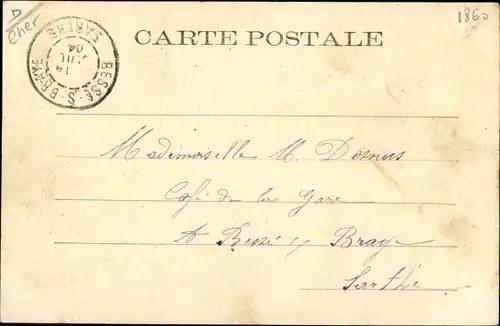 D
Cher
1860
CARTE POSTALE
BESSÉ-S-BRAYE
14
JUIL
04
SARTHE
Mademoiselle M. Desnus
Café de la Gare
A Bessé s/ Braye
Sarthe